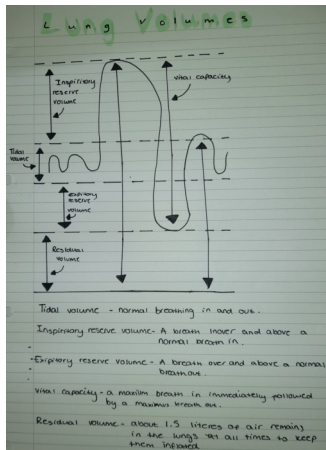 Lung Volumes
Inspiritory
reserve
volume
vital capacity
Tidal
volume
expitory
reserve
volume
Residual
volume
Tidal volume - normal breathing in and out.
Inspiritory reserve volume - A breath inover and above a
normal breath in.
Expiritory reserve volume - A breath over and above a normal
breath out.
Vital capacity - a maxium breath in immediatly followed
by a maximum breath out.
Residual volume - about 1.5 litres of air remains
in the lungs at all times to keep
them inflated